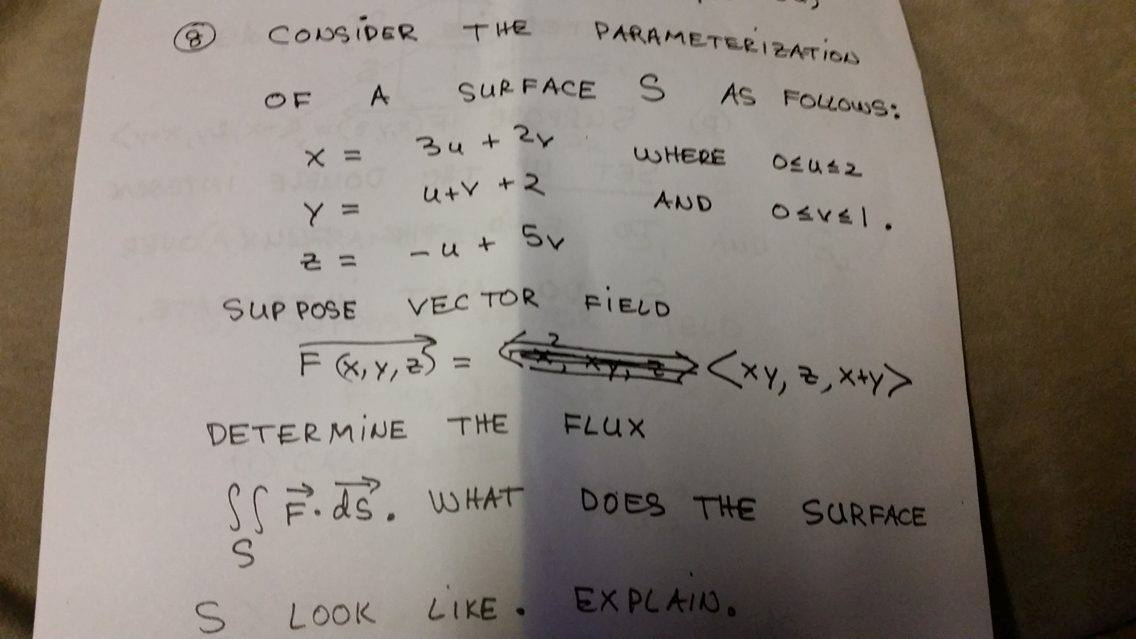 ⑧ CONSIDER THE PARAMETERIZATION
OF A SURFACE S AS FOLLOWS:
x = 3u + 2v WHERE 0≤u≤2
y = u+v + 2 AND 0≤v≤1.
z = -u + 5v
SUPPOSE VECTOR FIELD
F(x,y,z) = <xy, z, x+y>
DETERMINE THE FLUX
∬ F⃗·dS⃗. WHAT DOES THE SURFACE
S
S LOOK LIKE. EXPLAIN.